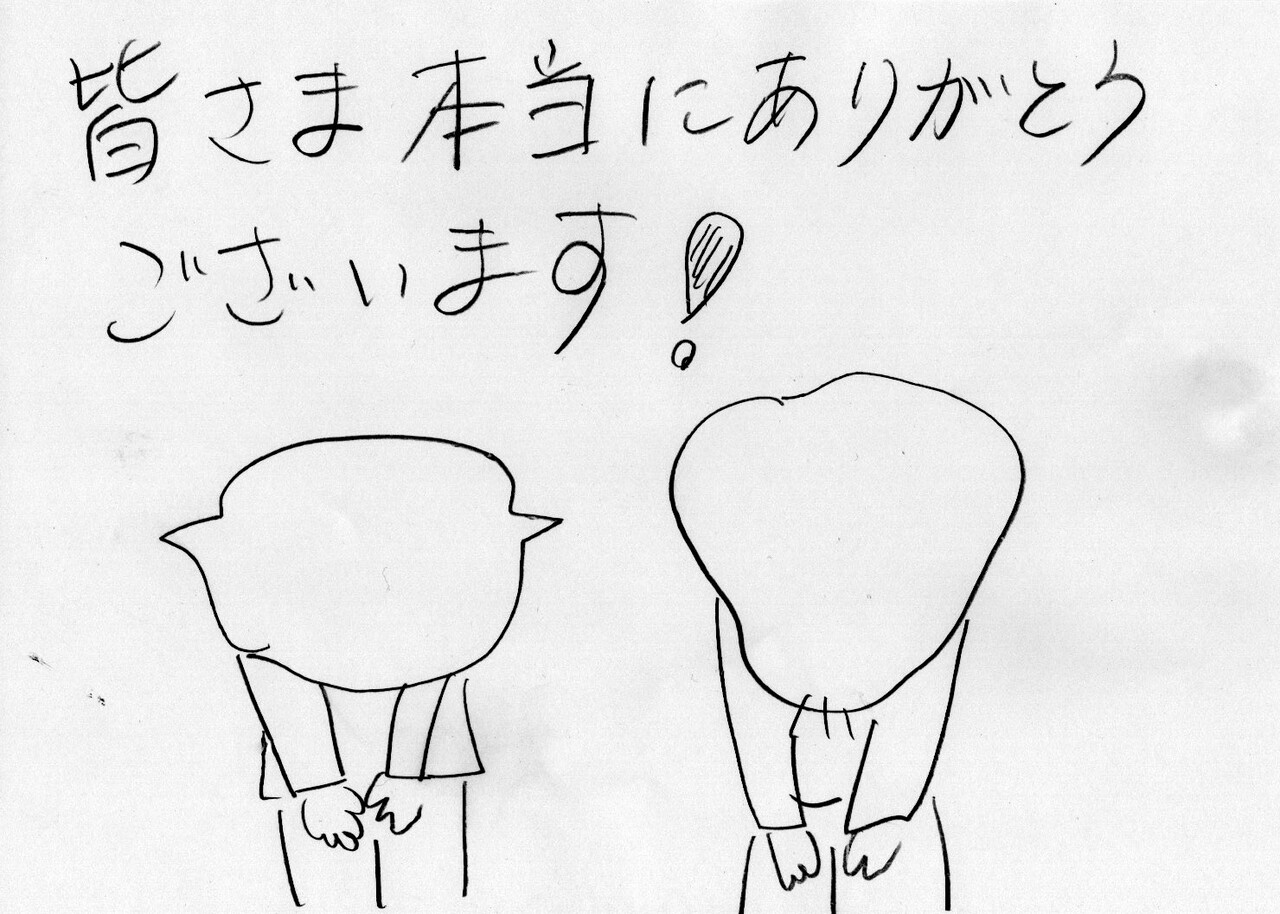 皆さま本当にありがとう
ございます!